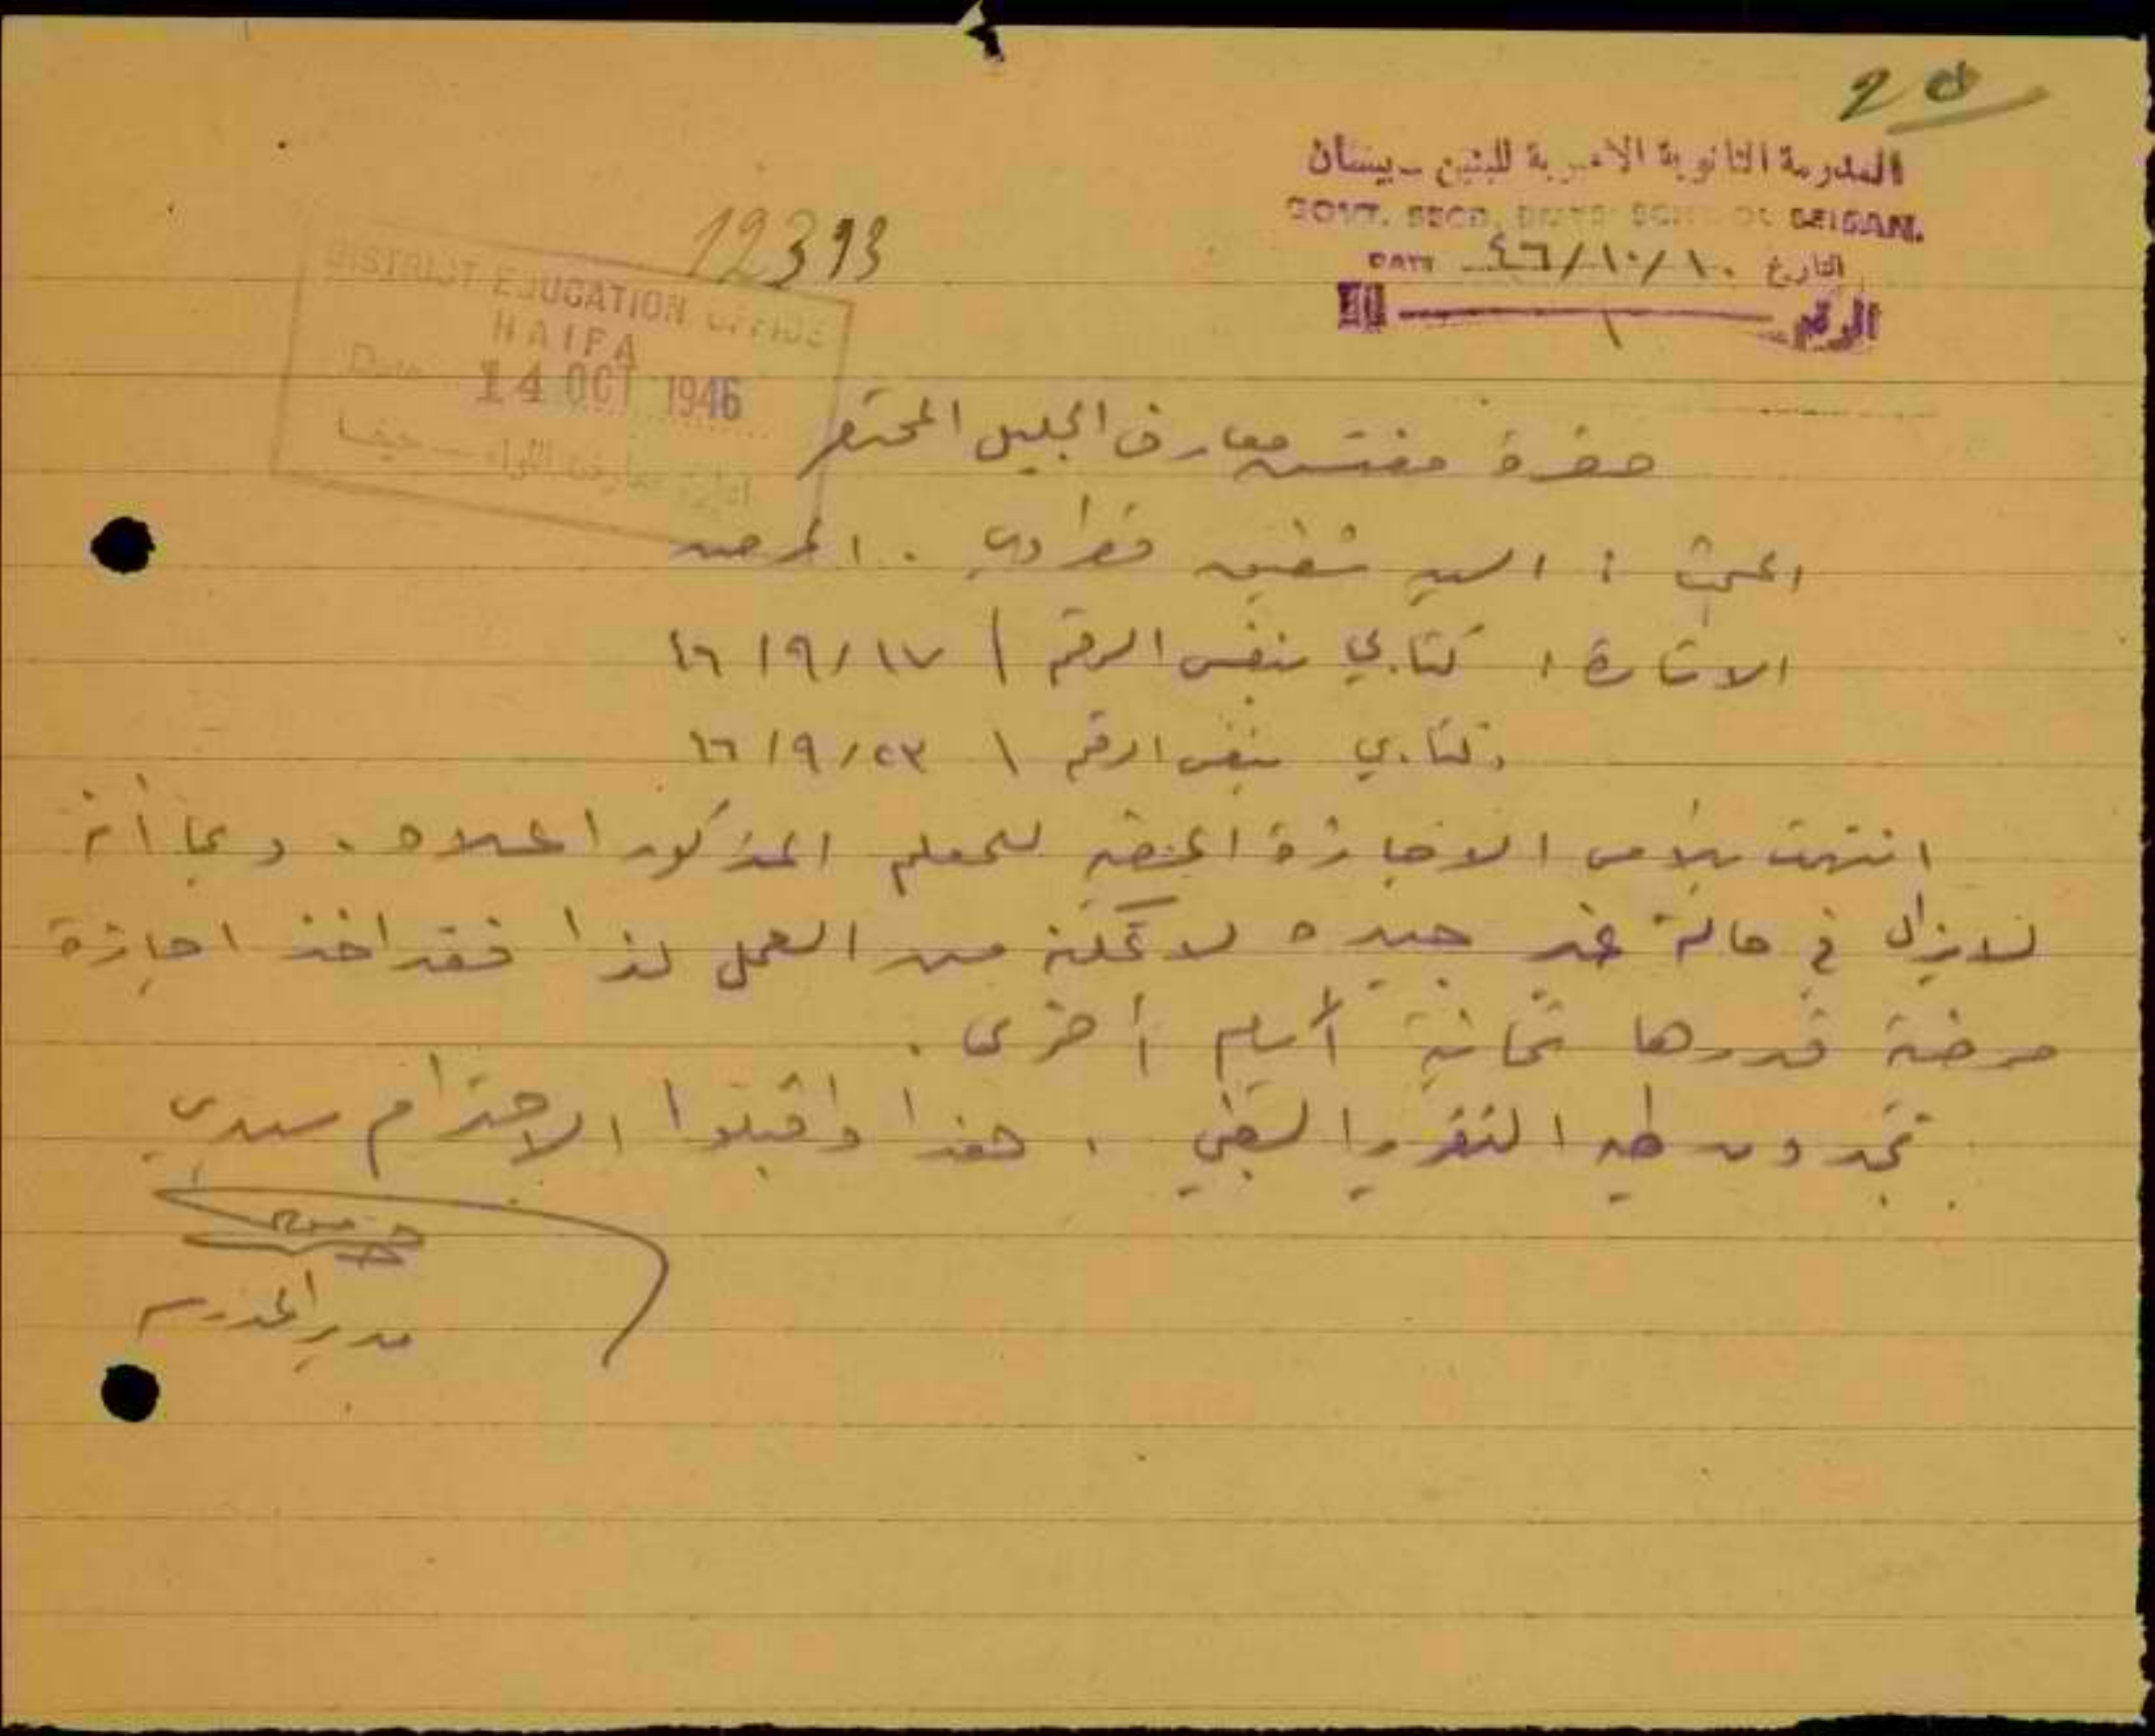 20
المدرسة الثانوية الاميرية للبنين - بيسان
GOVT. SECD. BOYS' SCHOOL BEISAN.
DATE ٤٦/١٠/١٠ التاريخ
الرقم ١
12393
DISTRICT EDUCATION OFFICE
HAIFA
Date 14 OCT 1946
ادارة معارف اللواء - حيفا
حضرة مفتش معارف الجليل المحترم
البحث : السيد شفيق . المرض
الاشارة : كتابي بنفس الرقم / ١٧/٩/٤٦
وكتابي بنفس الرقم \ ٢٣/٩/٤٦
انتهت بالامس الاجازة المرضية للمعلم المذكور اعلاه . وبما أنه
لا يزال في حالة غير جيده لا تمكنه من العمل لذا فقد اخذ اجازة
مرضية قدرها ثمانية أيام أخرى .
تجدون طيه التقرير الطبي . هذا واقبلوا الاحترام سيدي
مدير المدرسة